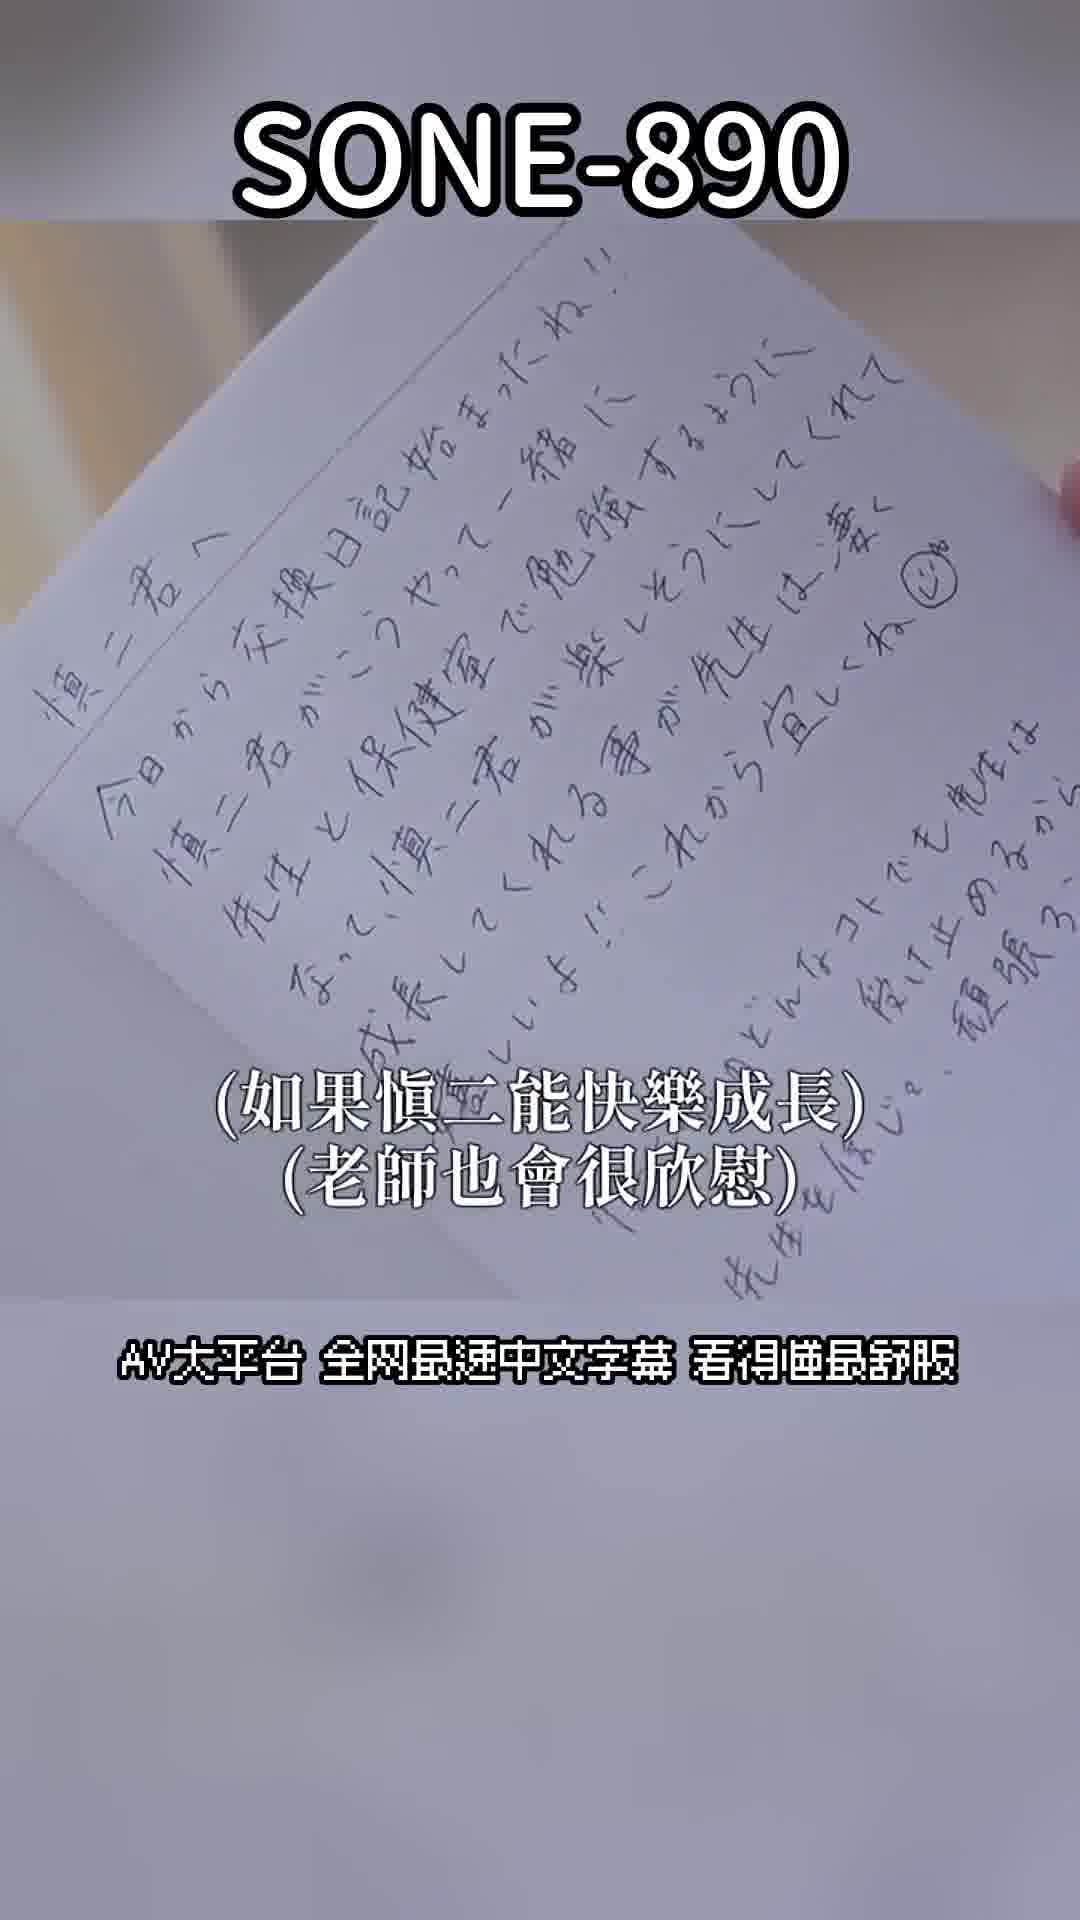 SONE-890
慎二君へ
今日から交換日記始まったね!!
慎二君がこうやって一緒に
先生と保健室で勉強するように
なって、慎二君が楽しそうにしてくれて
成長してくれる事が先生は凄く
しいよ!! これから宜しくね
どんなコトでも先生は
受け止めるから
先生を信じて 頑張ろ
(如果慎二能快樂成長)
(老師也會很欣慰)
AV大平台 全网最速中文字幕 看得懂最舒服